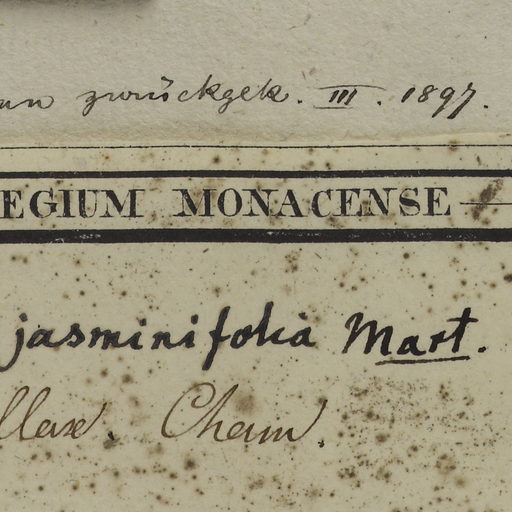 zurückgek. III. 1897.
EGIUM MONACENSE
jasminifolia Mart.
llax. Cham.